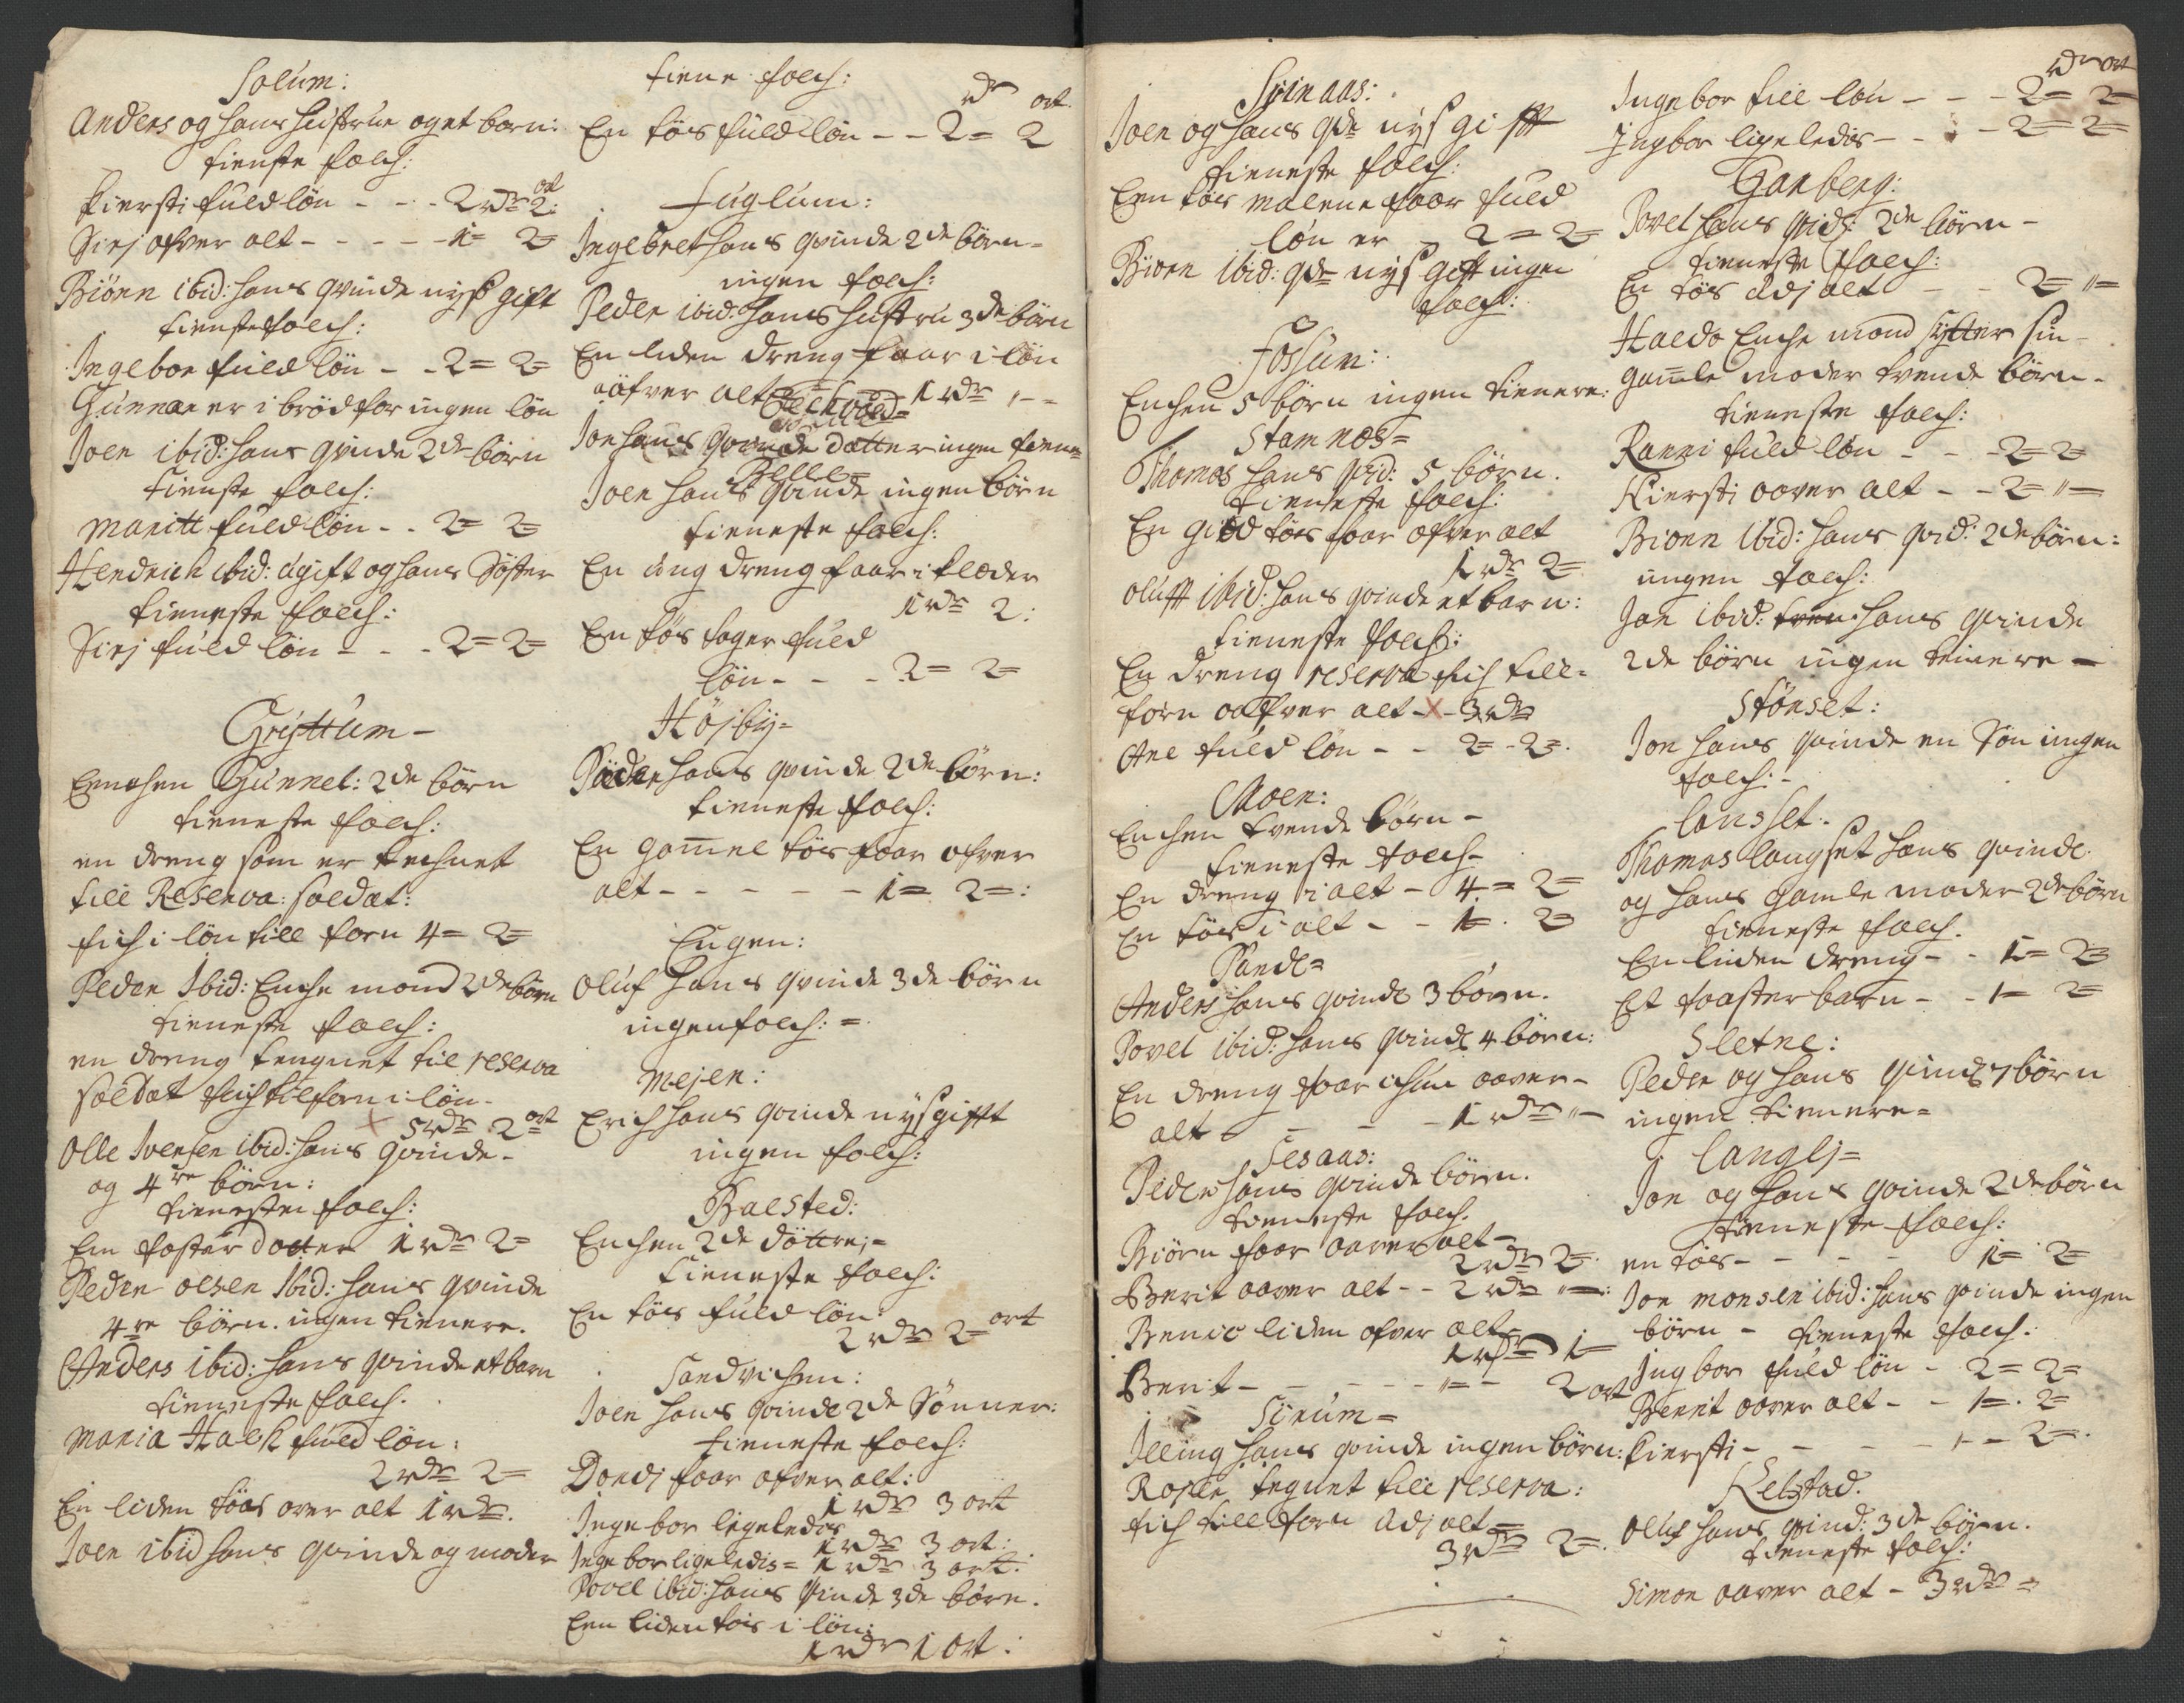 Solum:
Anders og hans hustrue og et barn:
tieneste folch:
Kiersti fuld løn - - - 2 rdr 2 ort
Sirj ofver alt - - - - 1= 2=
Biørn ibid: hans qvinde nys gift
tienste folch:
Ingebor fuld løn - - 2= 2=
Gunnar er i brød for ingen løn
Joen ibid: hans qvinde 2de børn
tienste folch:
Maritt fuld løn - - 2= 2=
Hendrich ibid: ugift og hans Søster
tieneste folch:
Sirj fuld løn - - - 2= 2=
Gristtum -
Enchen Gunnel: 2de børn
tieneste folch:
en dreng som er technet
till Reserva: soldat:
fich i løn till forn 4= 2=
Peder Ibid: Enche mand 2de børn
tieneste folch:
en dreng tengnet til reserva
soldat fich tilforn i løn -
5 rdr 2 ort
Olle Iversen ibid: hans qvinde -
og 4re børn:
tienesten folch:
Em foster dotter 1 rdr 2=
Peder olsen Ibid: hans qvinde
4re børn. ingen tienere.
Anders ibid: hans qvinde et barn
tieneste folch.
Maria Halch fuld løn:
2 rdr 2=
En liden tøes over alt 1 rdr.
Joen ibid hans qvinde og moder
tiene folch:
rdr ort.
En tøs fuld løn - - 2= 2
Fuglum:
Ingebret hans qvinde 2de børn =
ingen folch:
Peder ibid: hans hustru 3de børn
En liden dreng faar i løn
ofver alt 1 rdr - -
Jon hans qvinde dotter ingen tiene=
Belle=
Joen hans qvinde ingen børn
tieneste folch:
En ung dreng faar i klæder
1 rdr 2:
En tøs tager fuld
løn - - - 2= 2=
Høiby=
Peder hans qvinde 2de børn:
tieneste folch:
En gammel tøs faar ofver
alt - - - - - 1= 2=:
Eugen:
Oluf hans qvinde 3de børn
ingen folch: =
Mejen:
Erich hans qvinde nys gifft
ingen folch:
Balsted:
Enchen 2de døttre; =
tieneste folch:
En tøs fuld løn:
2 rdr 2= ort
Sandvichen:
Joen hans qvinde 2de Sønner:
tieneste folch:
Dordj faar ofver alt:
1 rdr 3 ort
Ingebor ligeledes
1 rdr 3 ort:
Ingebor ligeledis = 1 rdr 3 ort:
Povel ibid: hans qvinde 3de børn.
Een liden tøis i løn:
1 rdr 1 ort:
Svinaas:
Joen og hans qde nys gifft
tieneste folch:
Een tøs Malene faar fuld
løn er - 2= 2=
Biørn ibid: qde nys gifft ingen
folch:
Fossum:
Enchen 5 børn ingen tienere:
Stamnes=
Thomas hans qvid: 5 børn.
tieneste folch:
En giød tøes faar ofver alt
1 rdr 2=
Olufft ibid: hans qvinde et barn:
tieneste folch:
En dreng reserva fich till=
forn oaffver alt - x - 3 rdr
Ane fuld løn - - 2= - 2=.
Moen:
Enchen tvende børn -
tieneste folch -
En dreng i alt - 4= 2=
En tøs i alt - - 1=. 2=
Sande=
Anders hans qvinde 3 børn.
Povel ibid: hans qvinde 4 børn:
En dreng faar ichun oaver -
alt - - - 1 rdr "-
Sesaas:
Peder hans qvinde børn.
tieneste folch.
Biørn faar oaver alt -
2 rdr 2=
Berit oaver alt - - 2 rdr "=:
liden ofver alt -
1 rdr 1=
Berit - - - - - "= - 2 ort
Sirum=
Illing hans qvinde ingen børn:
tegnet till reserva:
fich till forn udj alt =
3 rdr 2=.
rdr ort
Ingebor till løn - - - 2= 2=
Ingbor ligeledis - - - - 2= 2=
Garberg:
Povel hans qvid: 2de børn -
tieneste folch:
En tøs udj alt - - 2= "=
Haldo Enche mand sytter sin -
gamle moder tvende børn -
tieneste folch:
Ranni fuld løn - - - 2= 2=
Kiersti oaver alt - - 2= "=
Biørn ibid: hans qvid: 2de børn:
ingen folch:
Jon ibid: hans qvinde
2de børn ingen teinere -
Stønset:
Jon hans qvinde en Søn ingen
folch: -
Langset.
Thomas langset hans qvinde
og hans gamle moder 2de børn
tieneste folch.
En liden dreng - - 1= 2=
Et foasterbarn - - 1= 2=
Sletne:
Peder og hans qvinde 7 børn
ingen tienere=
Langlj=
Jon og hans qvinde 2de børn
tieneste folch:
en tøs - - - - 1= 2=
Jon Monsen ibid: hans qvinde ingen
børn - tieneste folch:
Ingbor fuld løn - 2= 2=
Berrit oaver alt - - 1=. 2=
Kiersti - - - - 1- - 2=.
Kelstad.
Oluf hans qvind: 3de børn.
tieneste folch:
Simon oaver alt - 3 rdr =